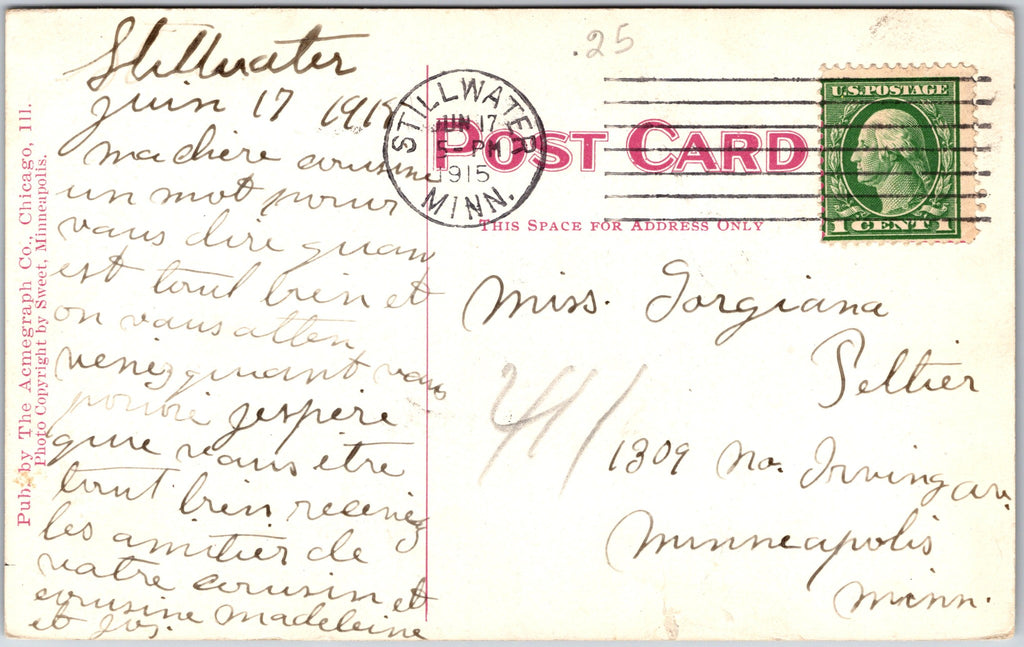 .25
Stillwater
juin 17 1915
ma chère cousine
un mot pour
vous dire quon
est tout bien et
on vous atten
venez quant vous
pouvié jespère
que vous être
tout bien recevez
les amitier de
votre cousin et
cousine Madeleine
et Jos.
STILLWATER
JUN 17
5-PM
1915
MINN.
U.S. POSTAGE
1 CENT 1
POST CARD
THIS SPACE FOR ADDRESS ONLY
Miss. Gorgiana
Peltier
1309 No. Irving av.
Minneapolis
Minn.
Pub. by The Acmegraph Co., Chicago, Ill.
Photo Copyright by Sweet, Minneapolis.